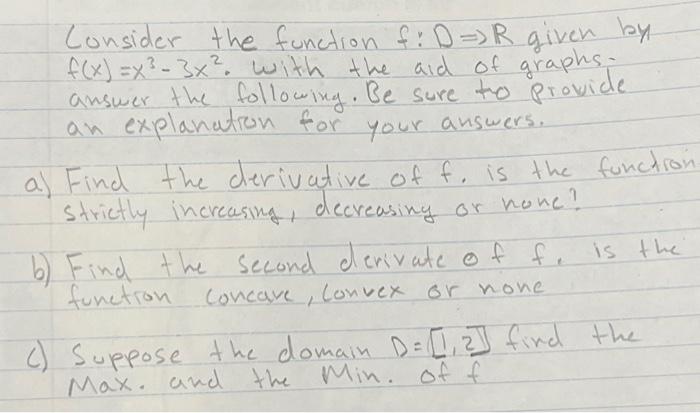 Consider the function f: D ⇒ R given by
f(x) = x³ - 3x². with the aid of graphs.
answer the following. Be sure to provide
an explanation for your answers.
a) Find the derivative of f. is the function
strictly increasing, decreasing or none?
b) Find the second derivate of f. is the
function concave, convex or none
c) Suppose the domain D = [1, 2] find the
Max. and the Min. of f